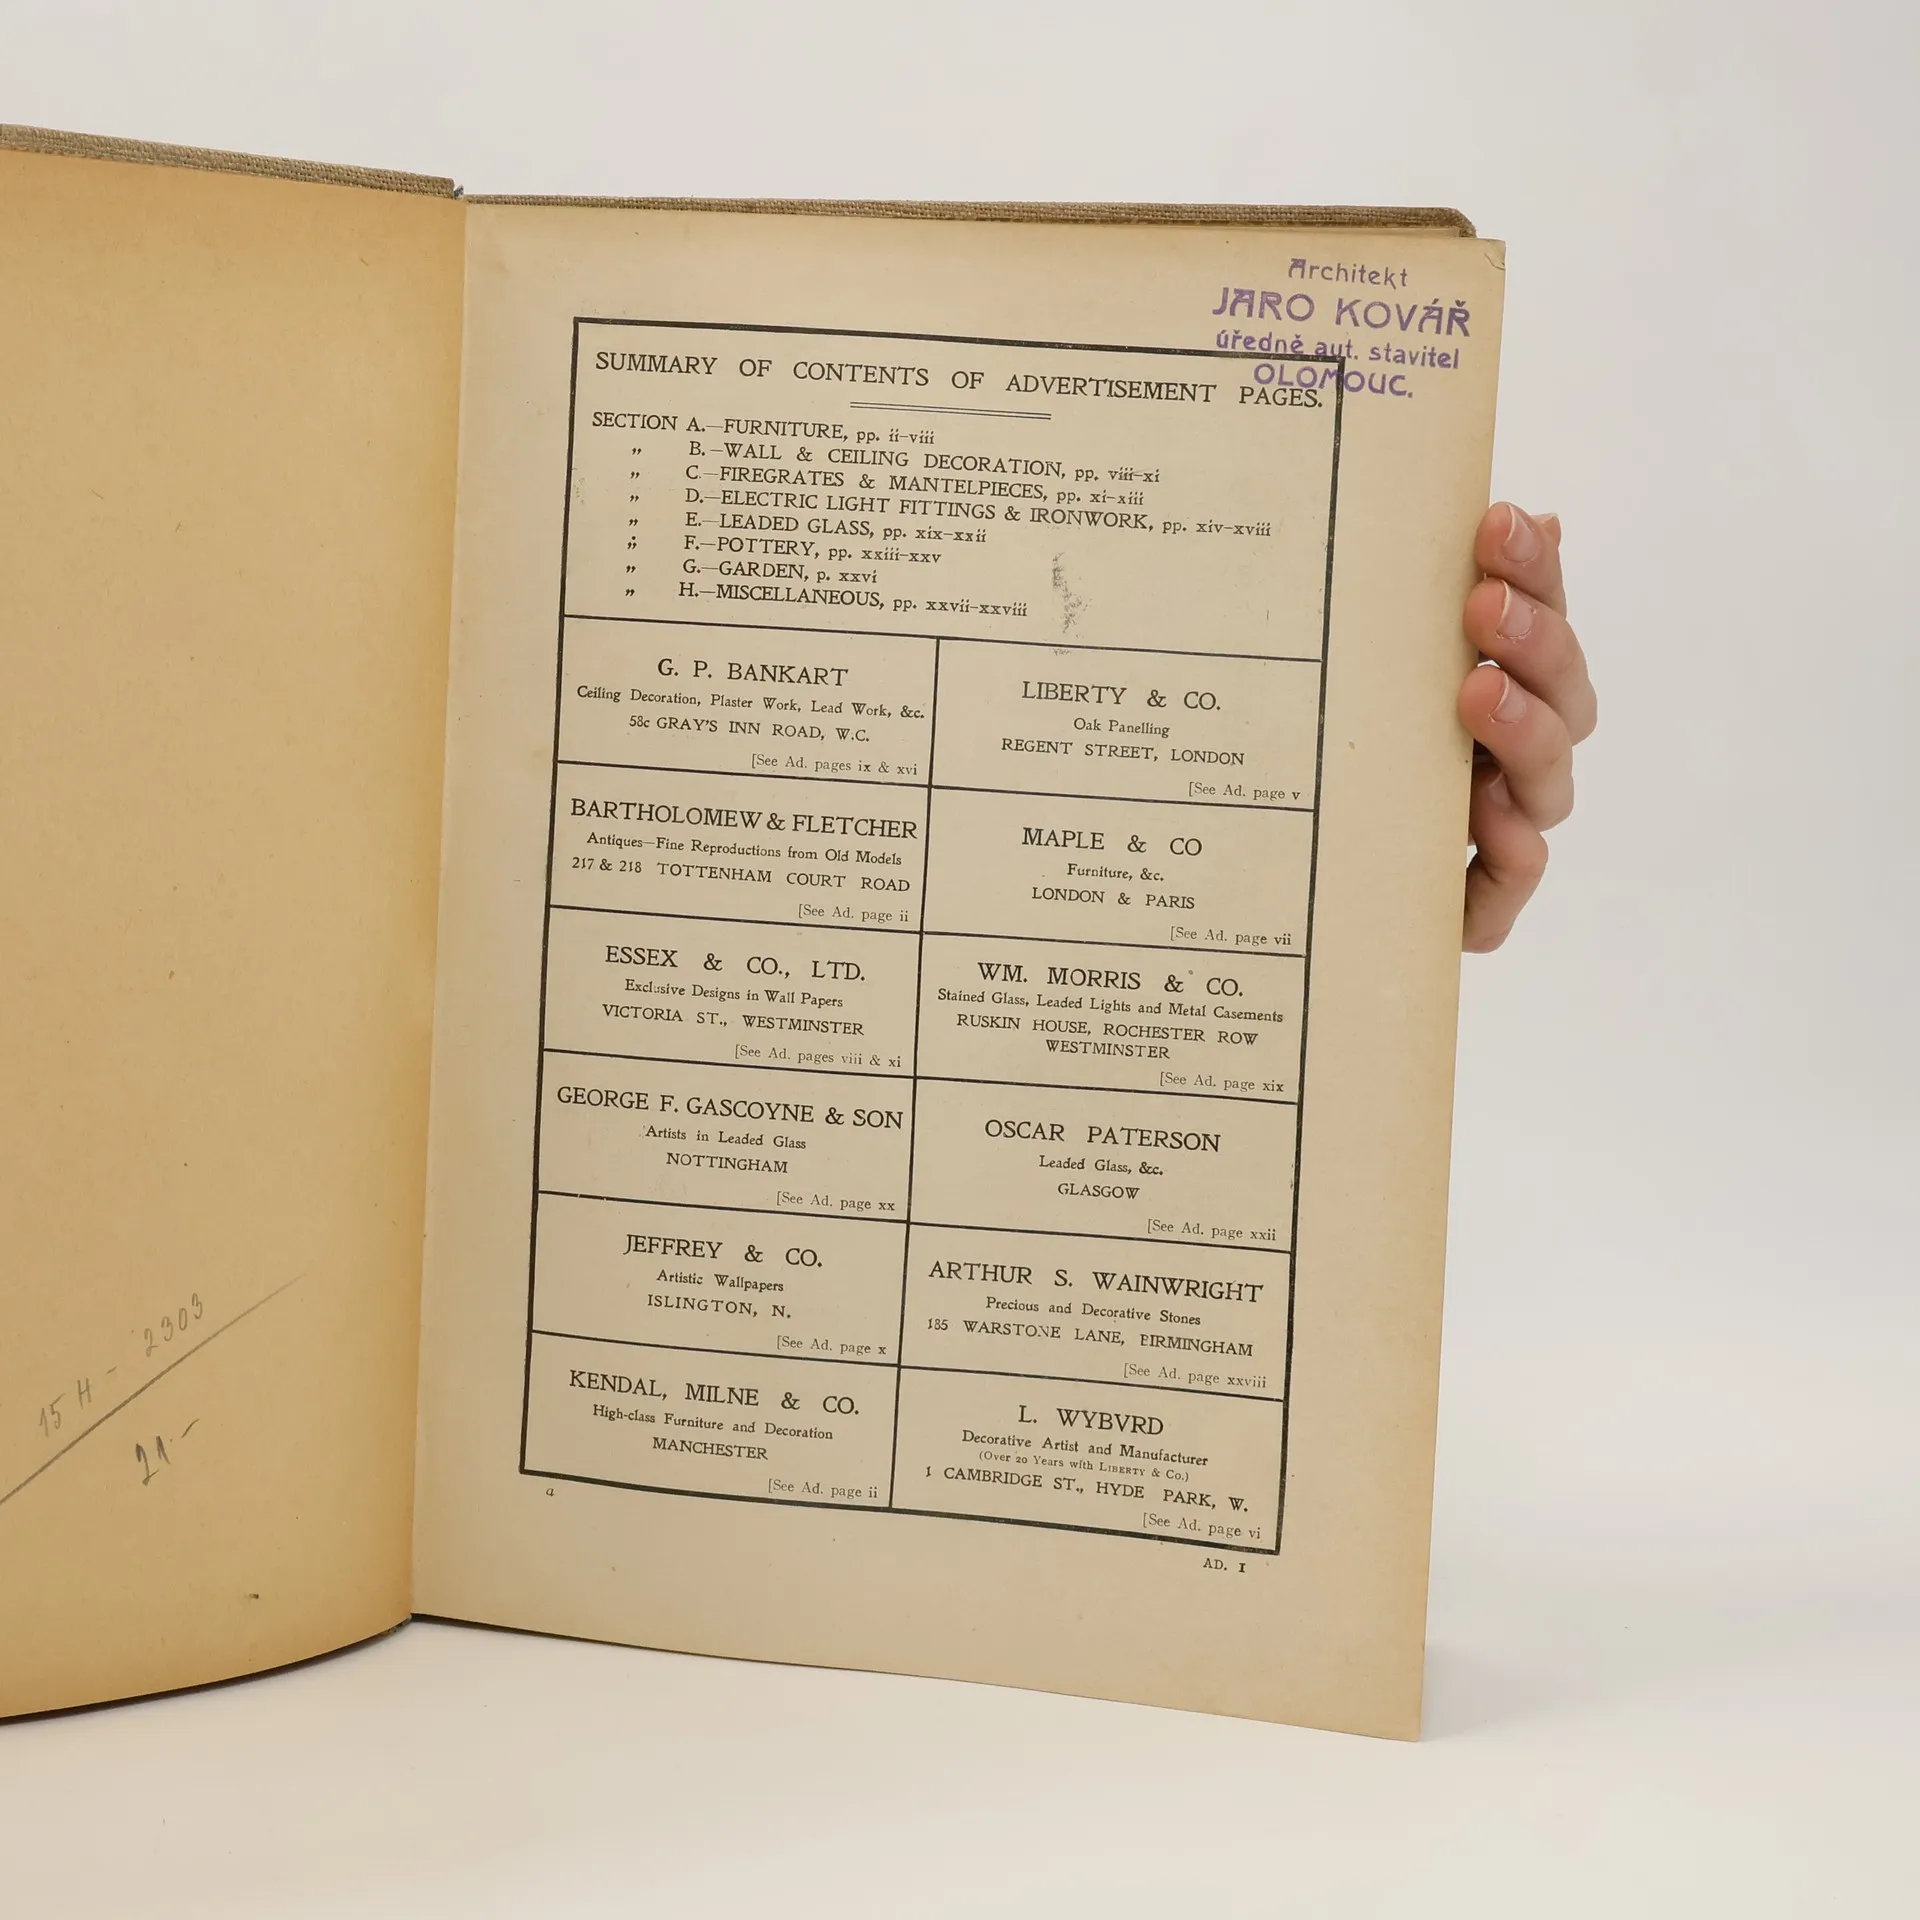 Architekt
JARO KOVÁŘ
úředně aut. stavitel
OLOMOUC.
SUMMARY OF CONTENTS OF ADVERTISEMENT PAGES.
SECTION A.—FURNITURE, pp. ii-viii
„ B.—WALL & CEILING DECORATION, pp. viii-xi
„ C.—FIREGRATES & MANTELPIECES, pp. xi-xiii
„ D.—ELECTRIC LIGHT FITTINGS & IRONWORK, pp. xiv-xviii
„ E.—LEADED GLASS, pp. xix-xxii
„ F.—POTTERY, pp. xxiii-xxv
„ G.—GARDEN, p. xxvi
„ H.—MISCELLANEOUS, pp. xxvii-xxviii
G. P. BANKART
Ceiling Decoration, Plaster Work, Lead Work, &c.
58c GRAY'S INN ROAD, W.C.
[See Ad. pages ix & xvi
LIBERTY & CO.
Oak Panelling
REGENT STREET, LONDON
[See Ad. page v
BARTHOLOMEW & FLETCHER
Antiques—Fine Reproductions from Old Models
217 & 218 TOTTENHAM COURT ROAD
[See Ad. page ii
MAPLE & CO
Furniture, &c.
LONDON & PARIS
[See Ad. page vii
ESSEX & CO., LTD.
Exclusive Designs in Wall Papers
VICTORIA ST., WESTMINSTER
[See Ad. pages viii & xi
WM. MORRIS & CO.
Stained Glass, Leaded Lights and Metal Casements
RUSKIN HOUSE, ROCHESTER ROW
WESTMINSTER
[See Ad. page xix
GEORGE F. GASCOYNE & SON
Artists in Leaded Glass
NOTTINGHAM
[See Ad. page xx
OSCAR PATERSON
Leaded Glass, &c.
GLASGOW
[See Ad. page xxii
JEFFREY & CO.
Artistic Wallpapers
ISLINGTON, N.
[See Ad. page x
ARTHUR S. WAINWRIGHT
Precious and Decorative Stones
185 WARSTONE LANE, BIRMINGHAM
[See Ad. page xxviii
KENDAL, MILNE & CO.
High-class Furniture and Decoration
MANCHESTER
[See Ad. page ii
L. WYBVRD
Decorative Artist and Manufacturer
(Over 20 Years with LIBERTY & Co.)
1 CAMBRIDGE ST., HYDE PARK, W.
[See Ad. page vi
a
AD. I
15 H - 2303
21.-